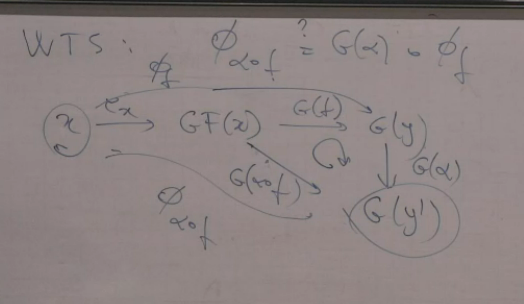 WTS: ϕ_{α∘f} ?= G(α) ∘ ϕ_f
ϕ_f
x e_x GF(x) G(f) G(y)
G(α∘f) G(α)
ϕ_{α∘f} G(y')